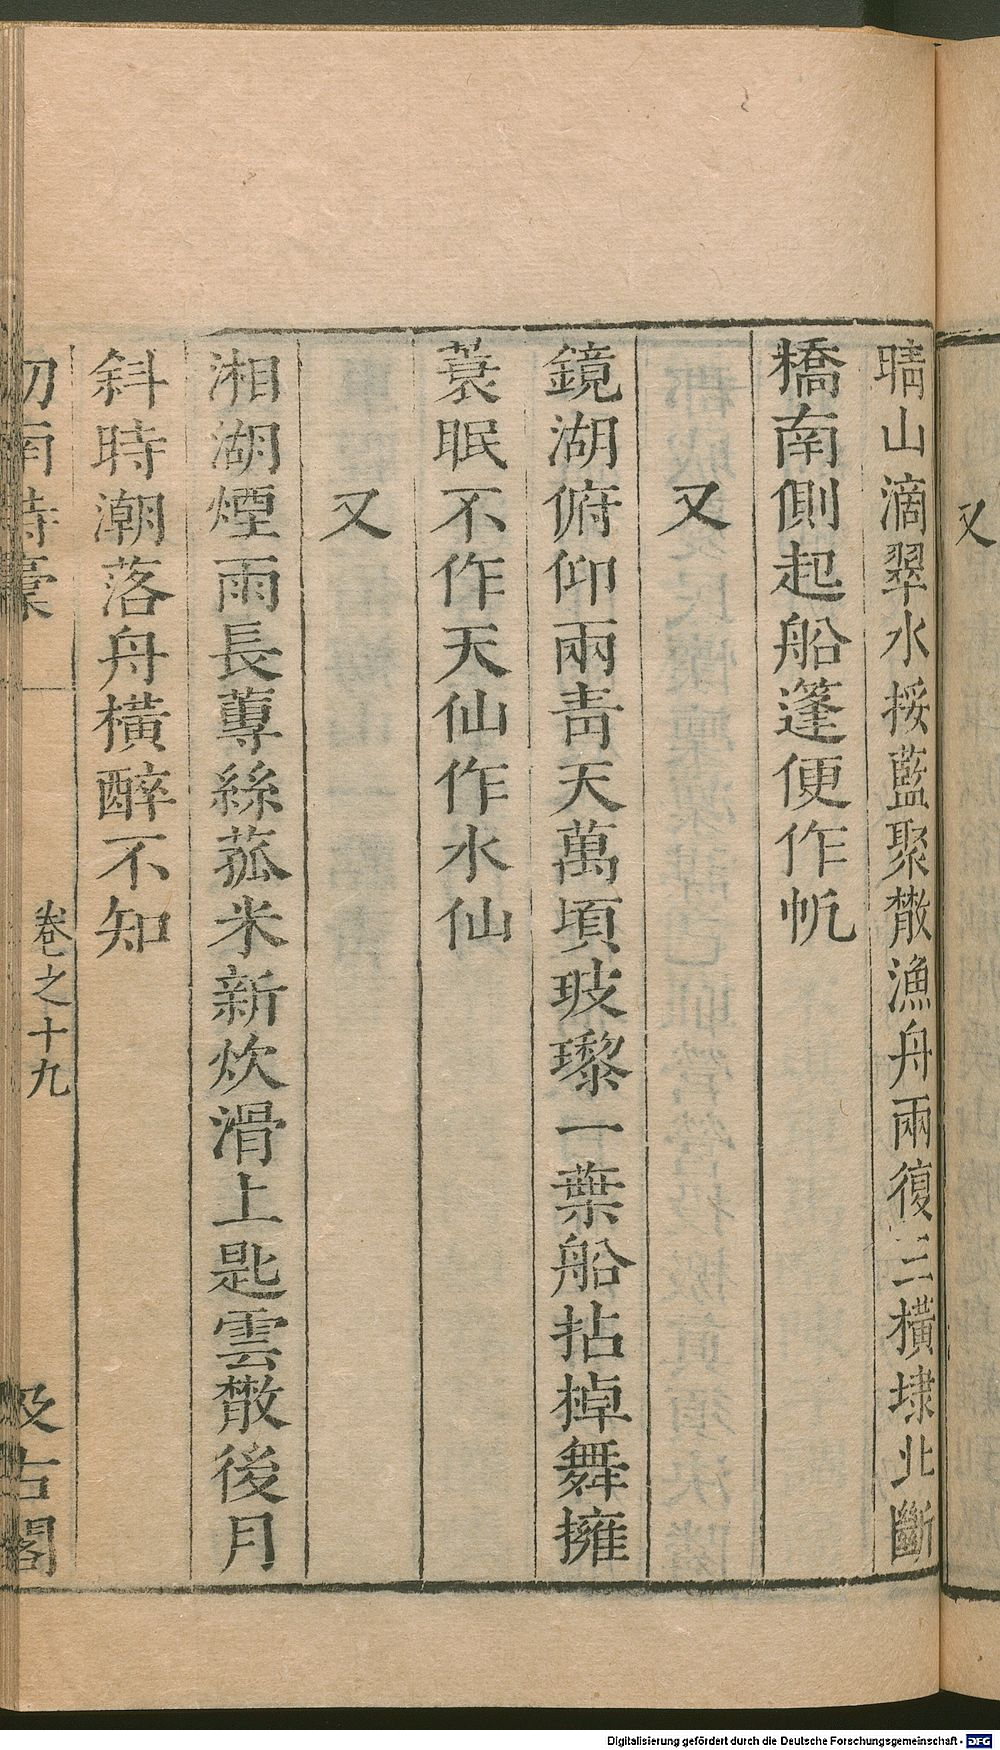 又
晴山滴翠水挼藍聚散漁舟兩復三橫埭北斷
橋南側起船篷便作帆
又
鏡湖俯仰兩青天萬頃玻瓈一葉船拈棹舞擁
蓑眠不作天仙作水仙
又
湘湖煙雨長蓴絲菰米新炊滑上匙雲散後月
斜時潮落舟橫醉不知
劒南詩稾
卷之十九
汲古閣
Digitalisierung gefördert durch die Deutsche Forschungsgemeinschaft - DFG